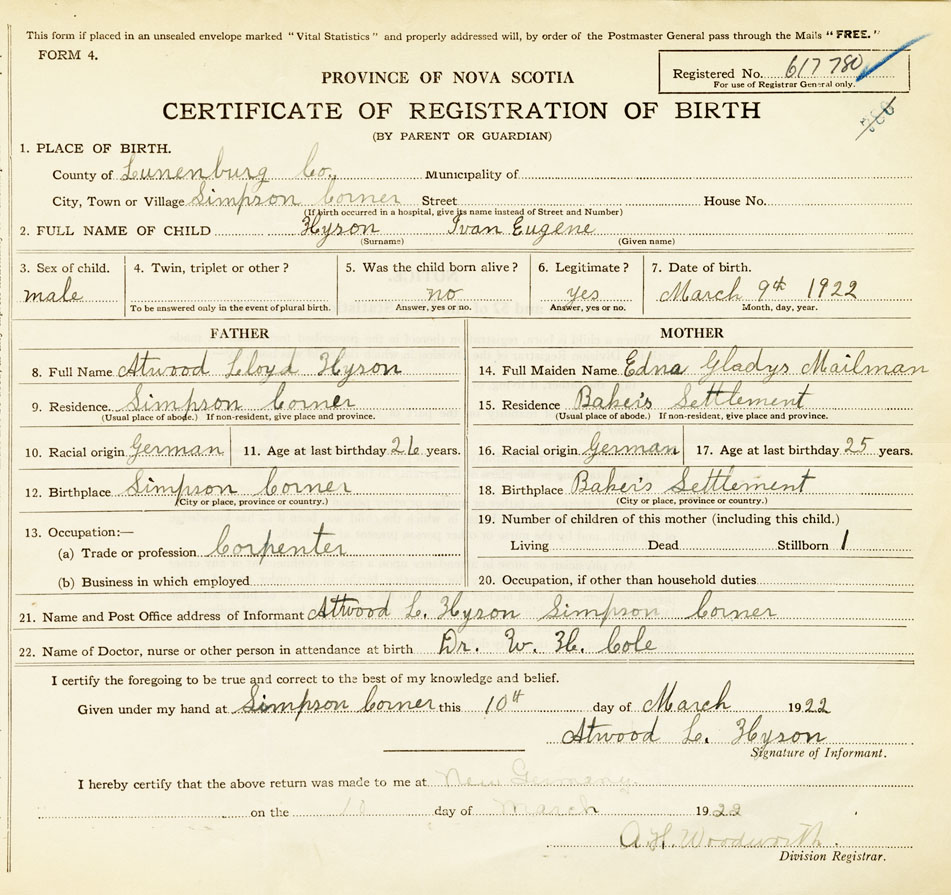 This form if placed in an unsealed envelope marked "Vital Statistics" and properly addressed will, by order of the Postmaster General pass through the Mails "FREE."
FORM 4.
Registered No. 617780
For use of Registrar General only.
PROVINCE OF NOVA SCOTIA
CERTIFICATE OF REGISTRATION OF BIRTH
(BY PARENT OR GUARDIAN)
1. PLACE OF BIRTH.
County of Lunenburg Co., Municipality of
City, Town or Village Simpson Corner Street House No.
(If birth occurred in a hospital, give its name instead of Street and Number)
2. FULL NAME OF CHILD Hyson Ivan Eugene
(Surname) (Given name)
3. Sex of child. 4. Twin, triplet or other? 5. Was the child born alive? 6. Legitimate? 7. Date of birth.
male no yes March 9th 1922
To be answered only in the event of plural birth. Answer, yes or no. Answer, yes or no. Month, day, year.
FATHER MOTHER
8. Full Name Atwood Lloyd Hyson 14. Full Maiden Name Edna Gladys Mailman
9. Residence. Simpson Corner 15. Residence Baker's Settlement
(Usual place of abode.) If non-resident, give place and province. (Usual place of abode.) If non-resident, give place and province.
10. Racial origin German 11. Age at last birthday 26 years. 16. Racial origin German 17. Age at last birthday 25 years.
12. Birthplace Simpson Corner 18. Birthplace Baker's Settlement
(City or place, province or country.) (City or place, province or country.)
13. Occupation:— 19. Number of children of this mother (including this child.)
(a) Trade or profession Corpenter Living Dead Stillborn 1
(b) Business in which employed 20. Occupation, if other than household duties
21. Name and Post Office address of Informant Attwood L. Hyson Simpson Corner
22. Name of Doctor, nurse or other person in attendance at birth Dr. W. H. Cole
I certify the foregoing to be true and correct to the best of my knowledge and belief.
Given under my hand at Simpson Corner this 10th day of March 1922
Atwood L. Hyson
Signature of Informant.
I hereby certify that the above return was made to me at New Germany.
on the 10 day of March 1922
A. H. Woodworth.
Division Registrar.